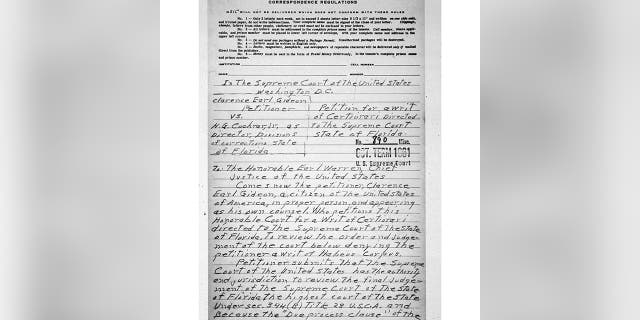 CORRESPONDENCE REGULATIONS
MAIL WILL NOT BE DELIVERED WHICH DOES NOT CONFORM WITH THESE RULES
No. 1 -- Only 2 letters each week, not to exceed 2 sheets letter-size 8 1/2 x 11" and written on one side only,
and if ruled paper, do not write between lines. Your complete name must be signed at the close of your letter.
No. 2 -- All letters must be addressed in the complete prison name of the inmate. Cell number, where applicable,
and prison number must be placed in lower left corner of envelope, with your complete name and address in the
upper left corner.
No. 3 -- Do not send any packages without a Package Permit. Unauthorized packages will be destroyed.
No. 4 -- Letters must be written in English only.
No. 5 -- Books, magazines, pamphlets, and newspapers of reputable character will be delivered only if mailed
direct from the publisher.
No. 6 -- Money must be sent in the form of Postal Money Orders only, in the inmate's complete prison name
and prison number.
INSTITUTION CELL NUMBER
NAME NUMBER
In The Supreme Court of The United States
Washington D.C.
clarence Earl Gideon
Petitioner Petition for a writ
vs. of Certiorari Directed
H.G. Cochran, Jr., as to The Supreme Court
Director, Divisions State of Florida.
of corrections state No. 890 Misc.
of Florida OCT. TERM 1961
U. S. Supreme Court
To: The Honorable Earl Warren, Chief
Justice of the United States
Comes now the petitioner, Clarence
Earl Gideon, a citizen of The United states
of America, in proper person, and appearing
as his own counsel. Who petitions this
Honorable Court for a Writ of Certiorari
directed to The Supreme Court of The State
of Florida, To review the order and Judge-
ment of the court below denying The
petitioner a writ of Habeus Corpus.
Petitioner submits That The Supreme
Court of The United States has The authority
and jurisdiction to review The final Judge-
ment of The Supreme Court of The State
of Florida the highest court of The State
Under sec. 344(B) Title 28 U.S.C.A. and
Because The "Due process clause" of the